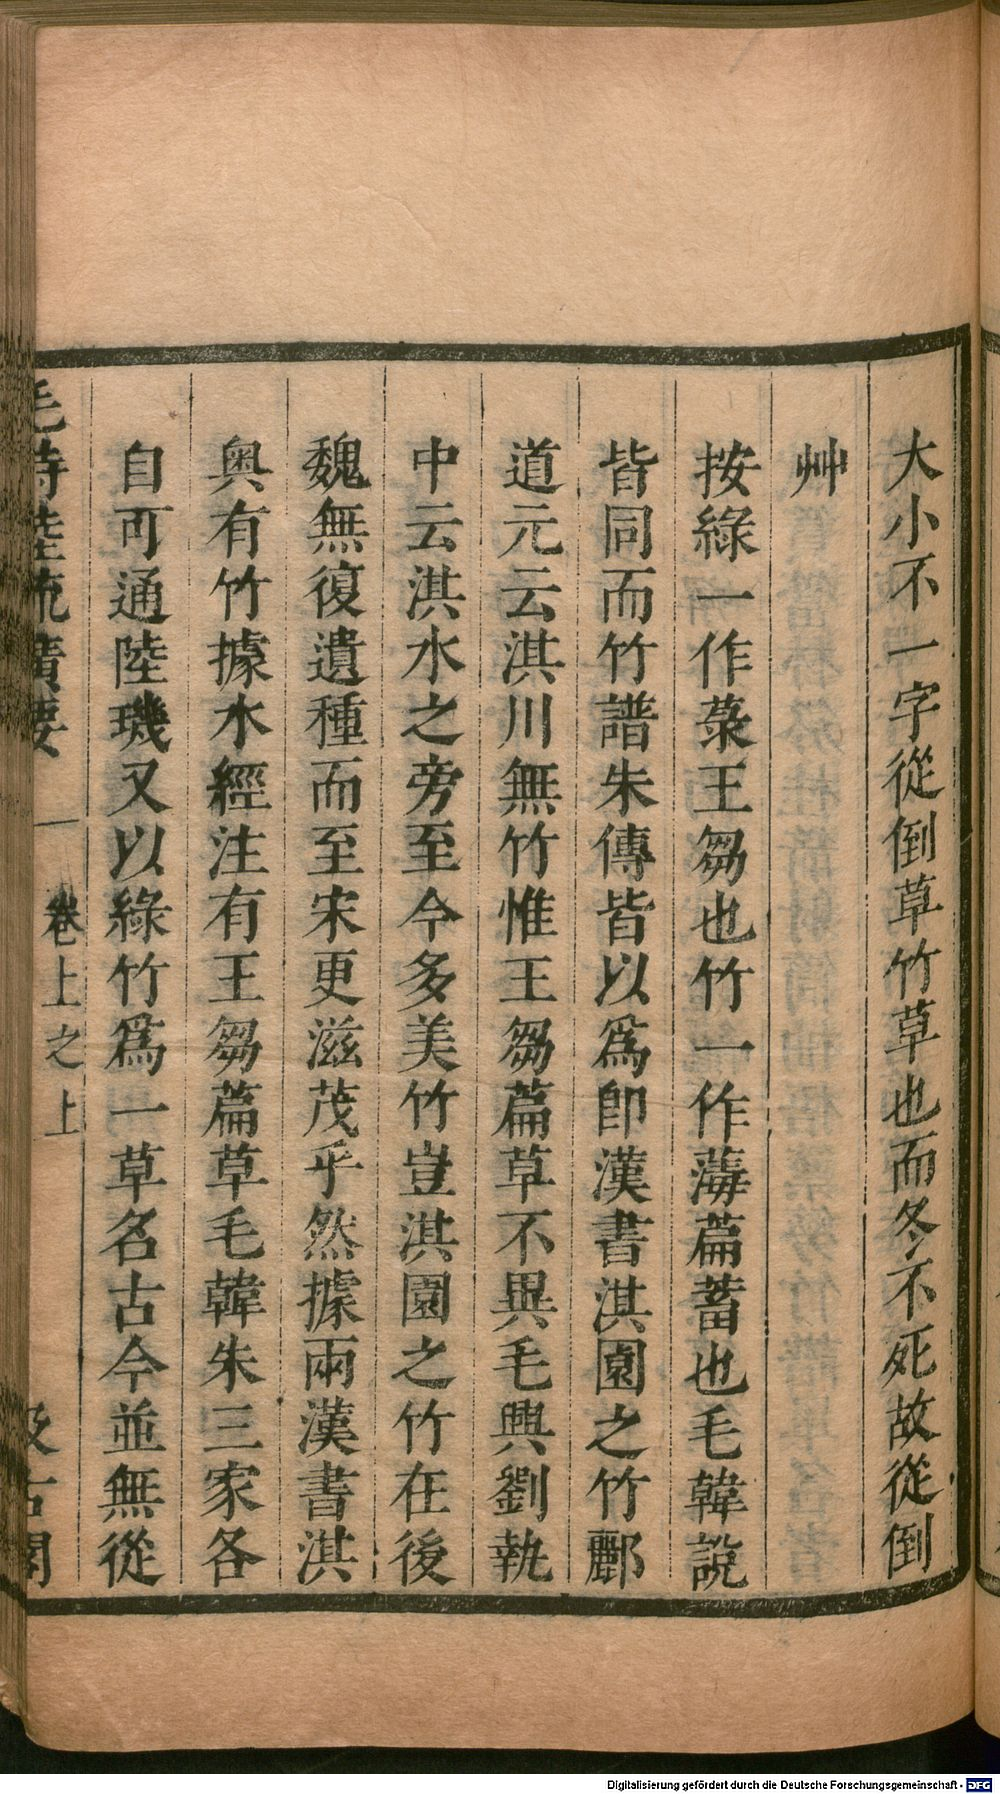 大小不一字從倒草竹草也而冬不死故從倒
艸
按綠一作菉王芻也竹一作薄篇蓄也毛韓說
皆同而竹譜朱傳皆以爲卽漢書淇園之竹酈
道元云淇川無竹惟王芻篇草不異毛興劉執
中云淇水之旁至今多美竹豈淇園之竹在後
魏無復遺種而至宋更滋茂乎然據兩漢書淇
奥有竹據水經注有王芻篇草毛韓朱三家各
自可通陸璣又以綠竹爲一草名古今並無從
毛詩陸疏廣要
卷上之上
汲古閣
Digitalisierung gefördert durch die Deutsche Forschungsgemeinschaft - DFG